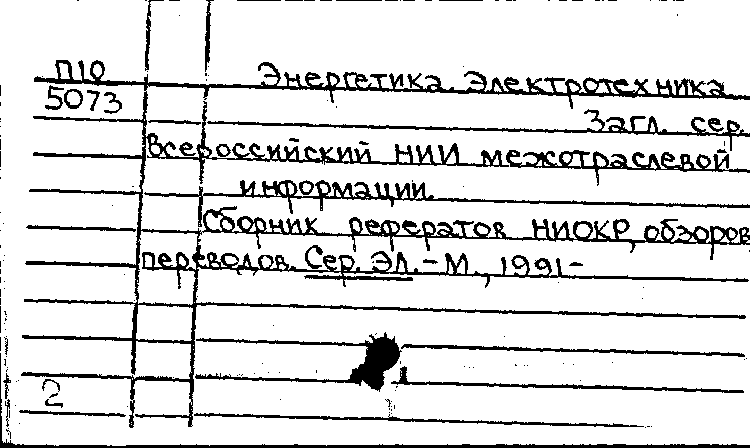 П10 Энергетика. Электротехника
5073
Загл. сер.
Всероссийский НИИ межотраслевой
информации.
Сборник рефератов НИОКР, обзоров,
переводов. Сер. ЭЛ. – М., 1991 –
2